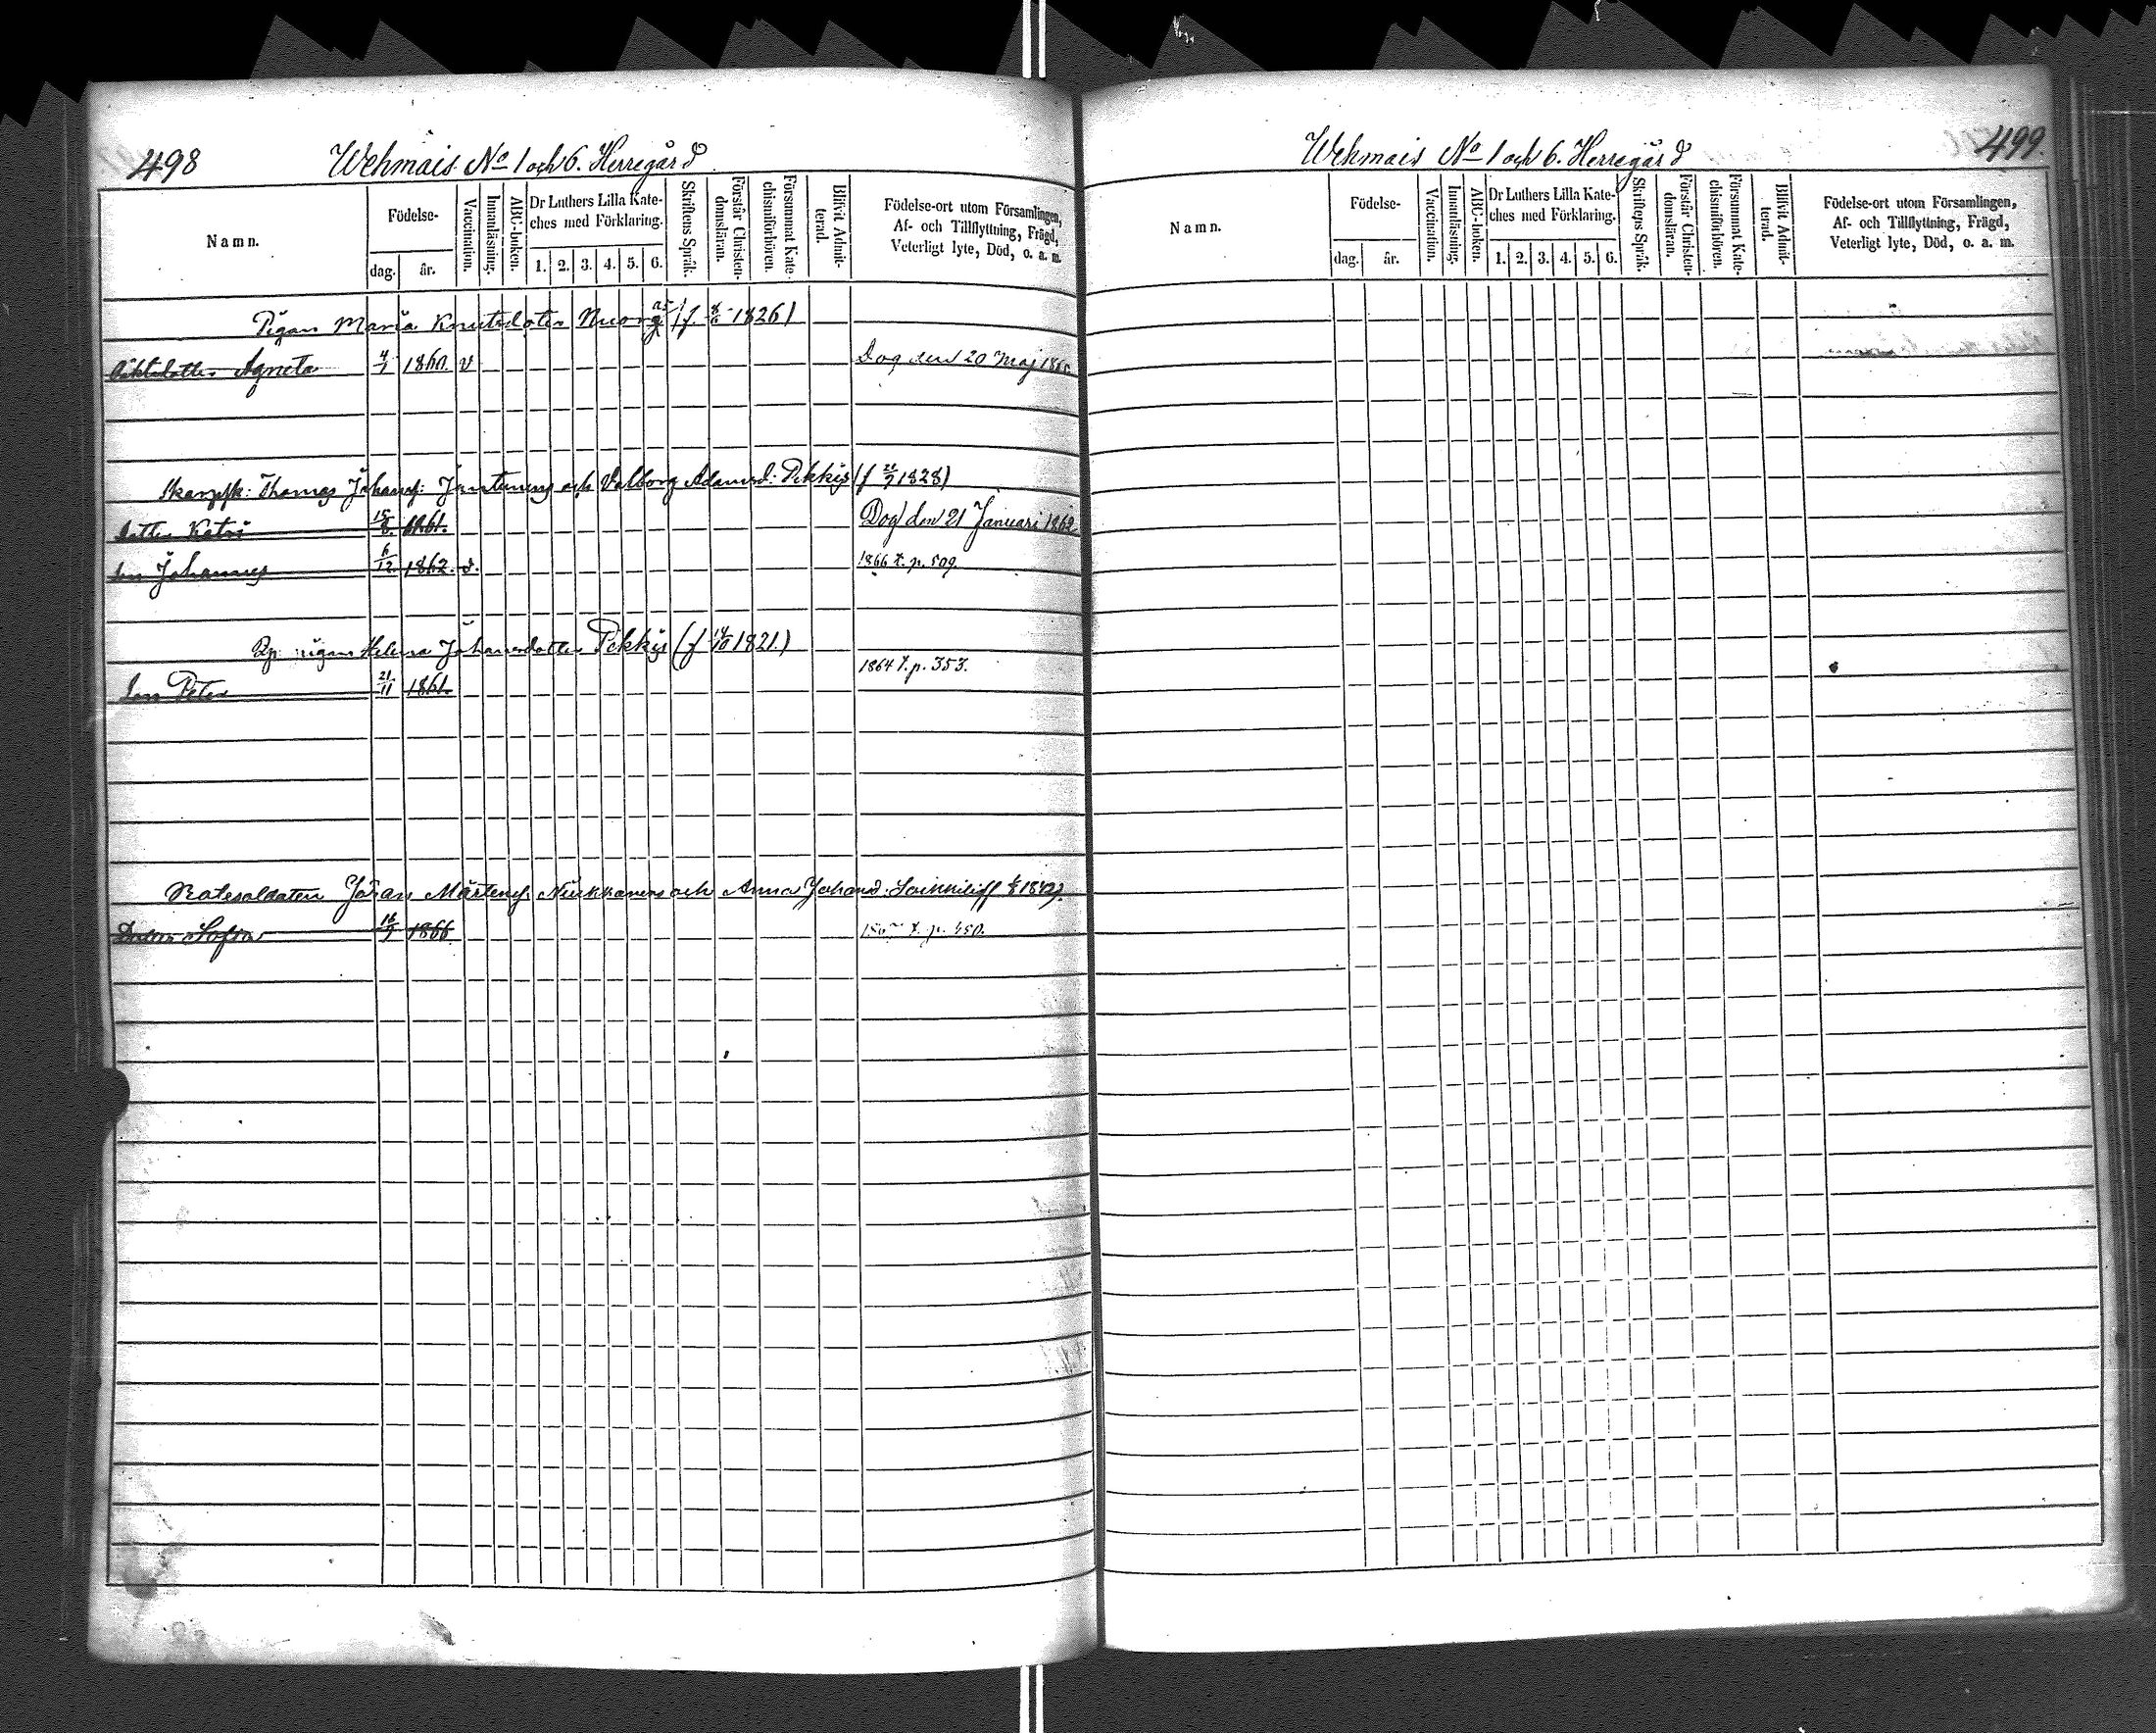 498
Wehmais No 1 och 6. Herregård
Namn.
Födelse-
dag.
år.
Vaccination.
Innanläsning.
ABC-boken.
Dr Luthers Lilla Kate-
ches med Förklaring.
1. 2. 3. 4. 5. 6.
Skriftens Språk.
Förstår Christen-
domsläran.
Försummat Kate-
chismiförhören.
Blifvit Admit-
terad.
Födelse-ort utom Församlingen,
Af- och Tillflyttning, Frägd,
Veterligt lyte, Död, o. a. m.
Pigan Maria Knutsdotter (f. 1826)
Agneta 4/1 1860. v Dog den 20 Maj 1860.
Thomas Johansf: Jantunens och Valborg Adamsd: Pekkijs (f 1828)
Dotter Katri 15/8. 1861. Dog den 21 Januari 1862
Son Johannes 6/12. 1862. v. 1866 t. p. 509.
pigans Helena Johansdotter Pekkijs (f 14/10 1821.)
Son Peter 21/11 1861. 1864 t. p. 353.
Rotesoldaten Göran Mårtensf. och Anna Johansd.
Dotter Sofia 1866 t. p. 450.
499
Wehmais No 1 och 6. Herregård
Namn.
Födelse-
dag.
år.
Vaccination.
Innanläsning.
ABC-boken.
Dr Luthers Lilla Kate-
ches med Förklaring.
1. 2. 3. 4. 5. 6.
Skriftens Språk.
Förstår Christen-
domsläran.
Försummat Kate-
chismiförhören.
Blifvit Admit-
terad.
Födelse-ort utom Församlingen,
Af- och Tillflyttning, Frägd,
Veterligt lyte, Död, o. a. m.